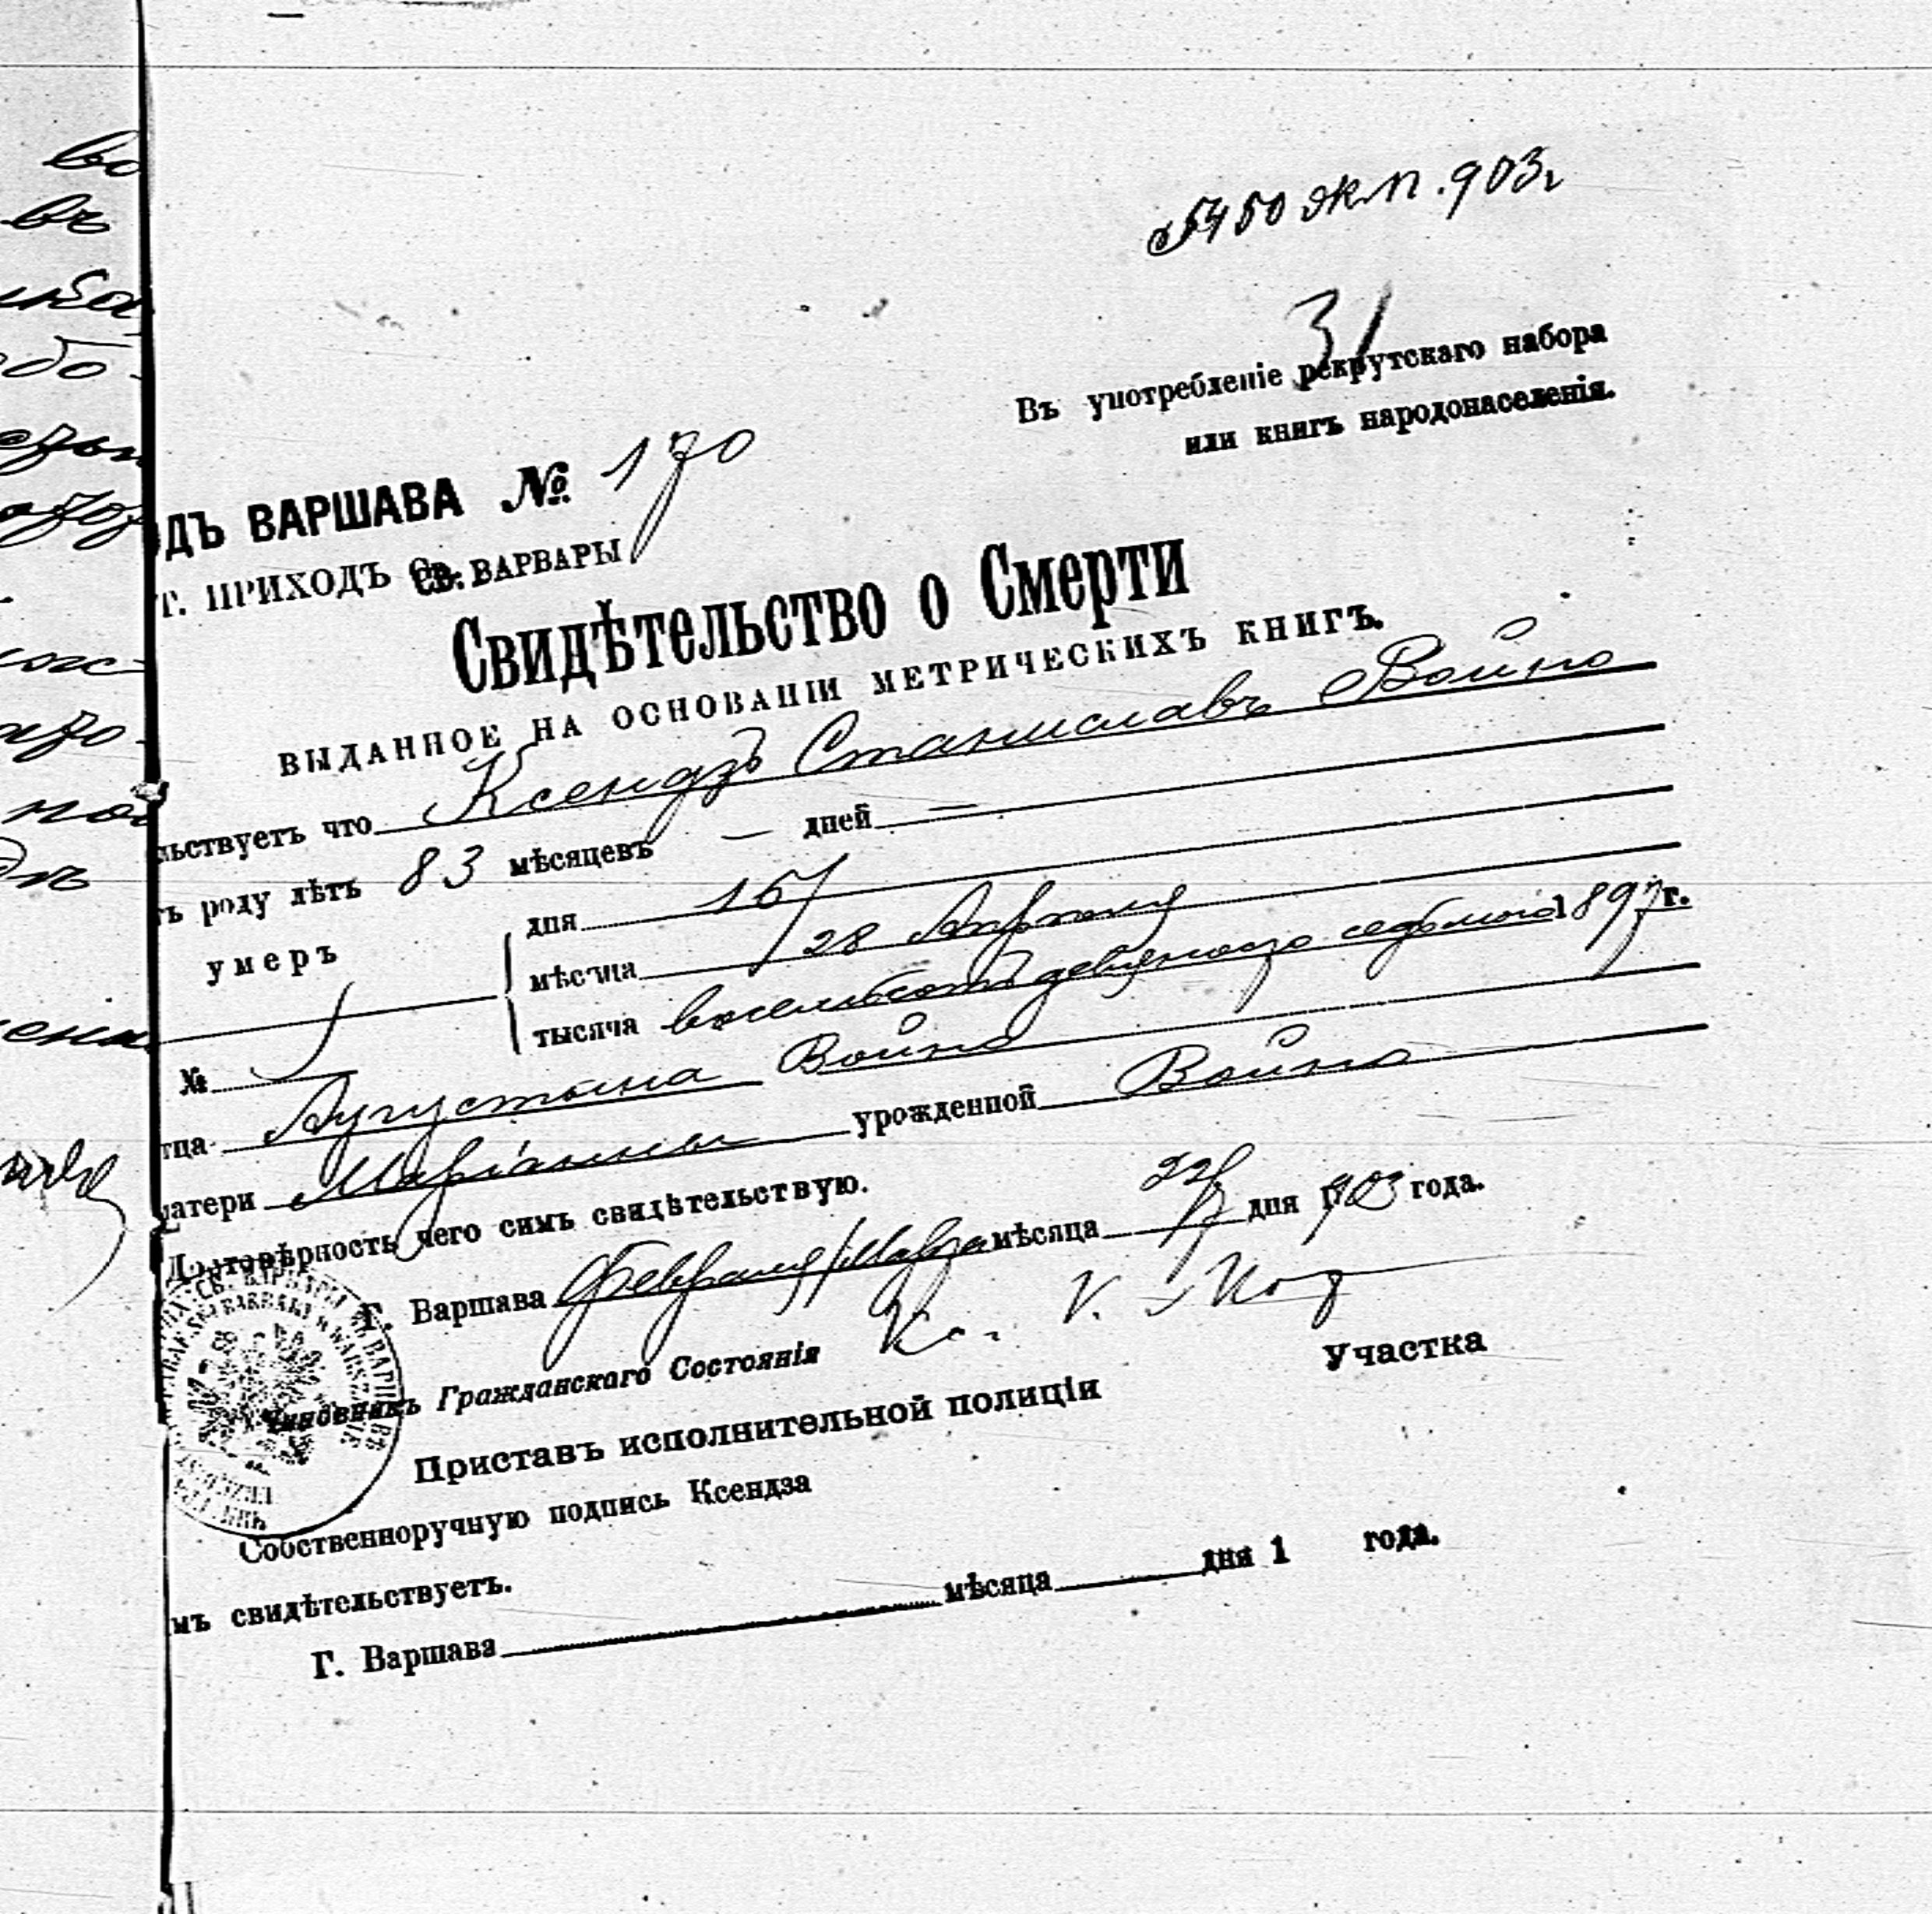 5450 эк.п. 903 г
31
Въ употребленіе рекрутскаго набора
или книгъ народонаселенія.
ДЪ ВАРШАВА № 170
Г. ПРИХОДЪ СВ. ВАРВАРЫ
Свидѣтельство о Смерти
ВЫДАННОЕ НА ОСНОВАНІИ МЕТРИЧЕСКИХЪ КНИГЪ.
льствуетъ что Ксендзъ Станиславъ Война
ъ роду лѣтъ 83 мѣсяцевъ — дней —
умеръ
дня 16/
мѣсяца /28 Апрѣля
тысяча восемьсотъ девяносто седьмого 1897 г.
№
тца Аугустына Война
матери Маріанны урожденной Война
Достовѣрность чего симъ свидѣтельствую.
Г. Варшава Февраля/Марта мѣсяца 22/7 дня 1903 года.
Чиновникъ Гражданскаго Состоянія Кс.
Приставъ исполнительной полиціи Участка
Собственноручную подпись Ксендза
мъ свидѣтельствуетъ.
Г. Варшава мѣсяца дня 1 года.